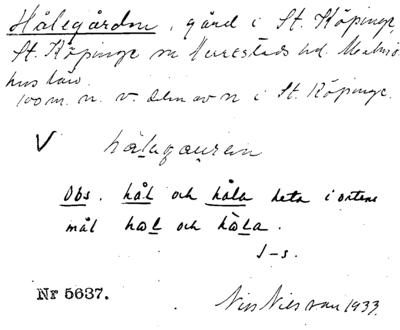 Hålegården, gård i St. Köpinge,
St. Köpinge sn Herestads hd. Malmö-
hus län.
100 m. n. v. därav n i St. Köpinge.
V hålegaụren
Obs. hål och håla heta i ortens
mål hol och håla.
J-s.
Nr 5637.
Nils Nilsson 1933.